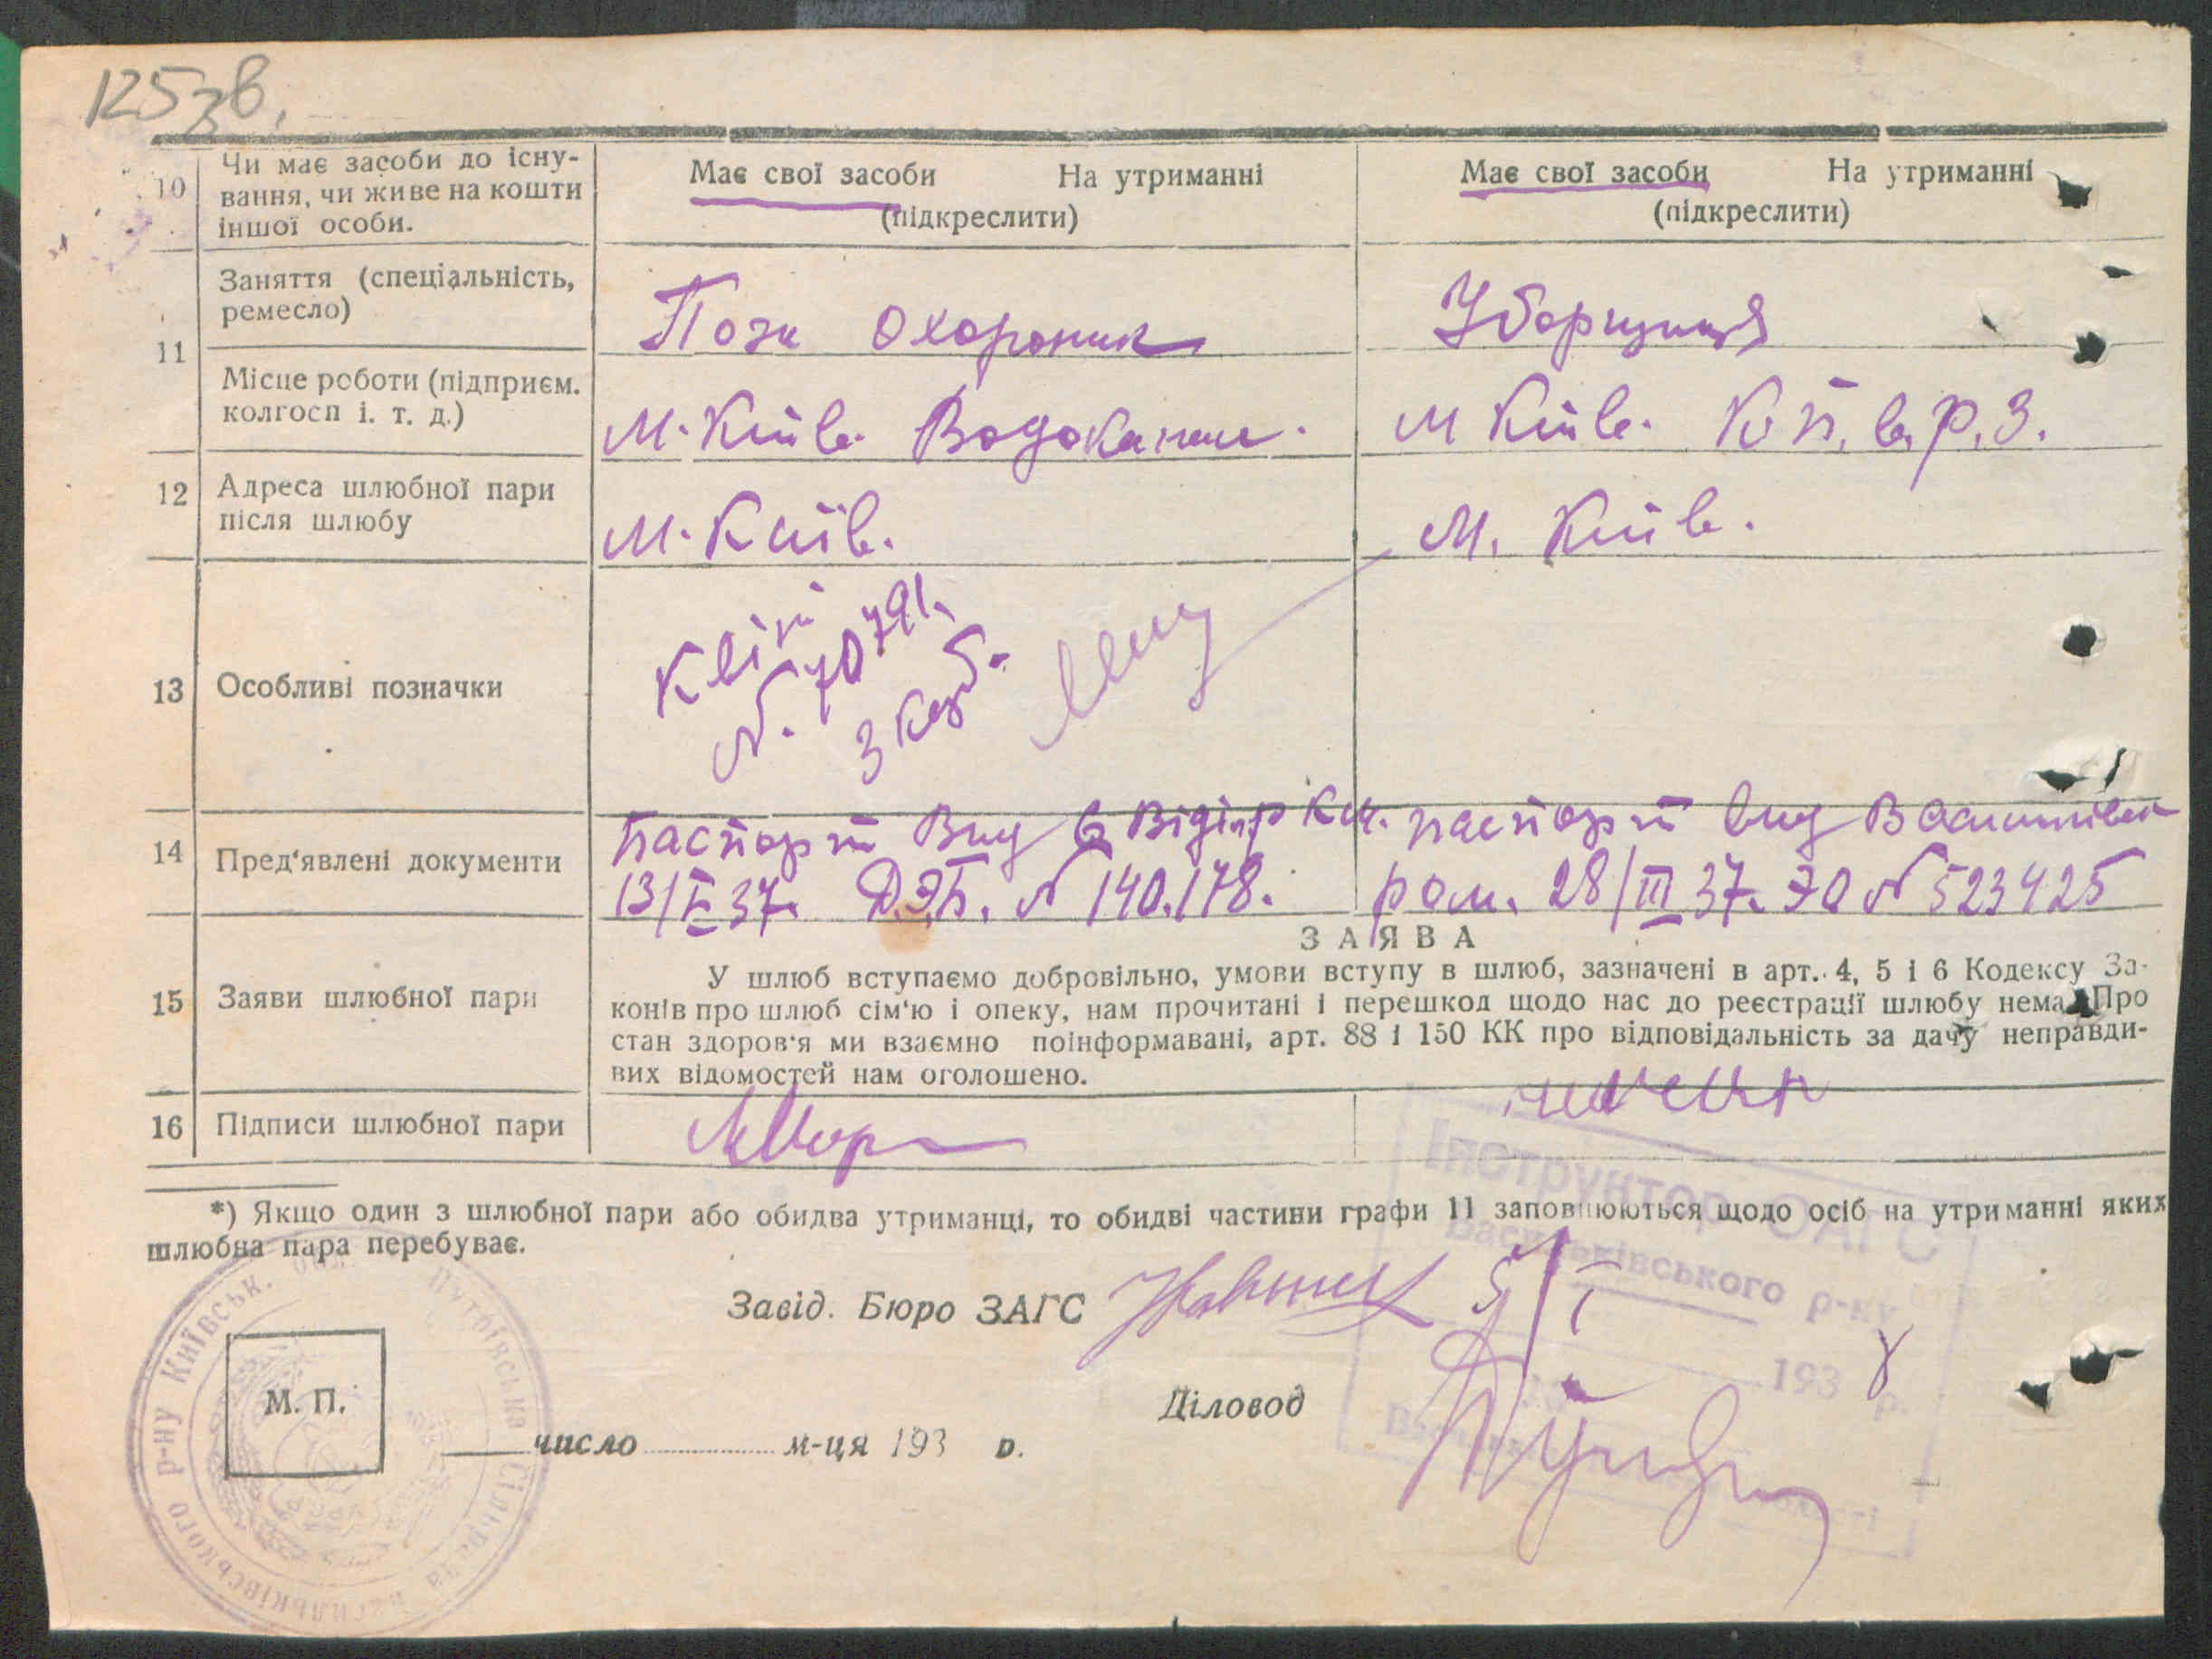 125 зв.
10 Чи має засоби до існу-
вання, чи живе на кошти
іншої особи.
Має свої засоби На утриманні
(підкреслити)
Має свої засоби На утриманні
(підкреслити)
11 Заняття (спеціальність,
ремесло)
Пож Охороник
Уборщиця
Місце роботи (підприєм.
колгосп і. т. д.)
М. Київ. Водоканал.
М Київ. К П. в. Р. З.
12 Адреса шлюбної пари
після шлюбу
М. Київ.
М. Київ.
13 Особливі позначки
Квіт
N. 70791.
3 кар 5.
14 Пред'явлені документи
Паспорт Вид 6 Відділ Р К М.
13/І 37. N 140.178.
паспорт вид Васильків
ром. 28/III 37. ЭО N 523425
15 Заяви шлюбної пари
ЗАЯВА
У шлюб вступаємо добровільно, умови вступу в шлюб, зазначені в арт. 4, 5 і 6 Кодексу За-
конів про шлюб сім'ю і опеку, нам прочитані і перешкод щодо нас до реєстрації шлюбу нема. Про
стан здоров'я ми взаємно поінформавані, арт. 88 і 150 КК про відповідальність за дачу неправди-
вих відомостей нам оголошено.
16 Підписи шлюбної пари
*) Якщо один з шлюбної пари або обидва утриманці, то обидві частини графи 11 заповнюються щодо осіб на утриманні яких
шлюбна пара перебуває.
Інструктор ОАГС
Васильківського р-ну
5/I
193 8 р.
Завід. Бюро ЗАГС
Діловод
М. П.
число м-ця 193 р.
Сільрада Васильківського р-ну Київськ. обл.